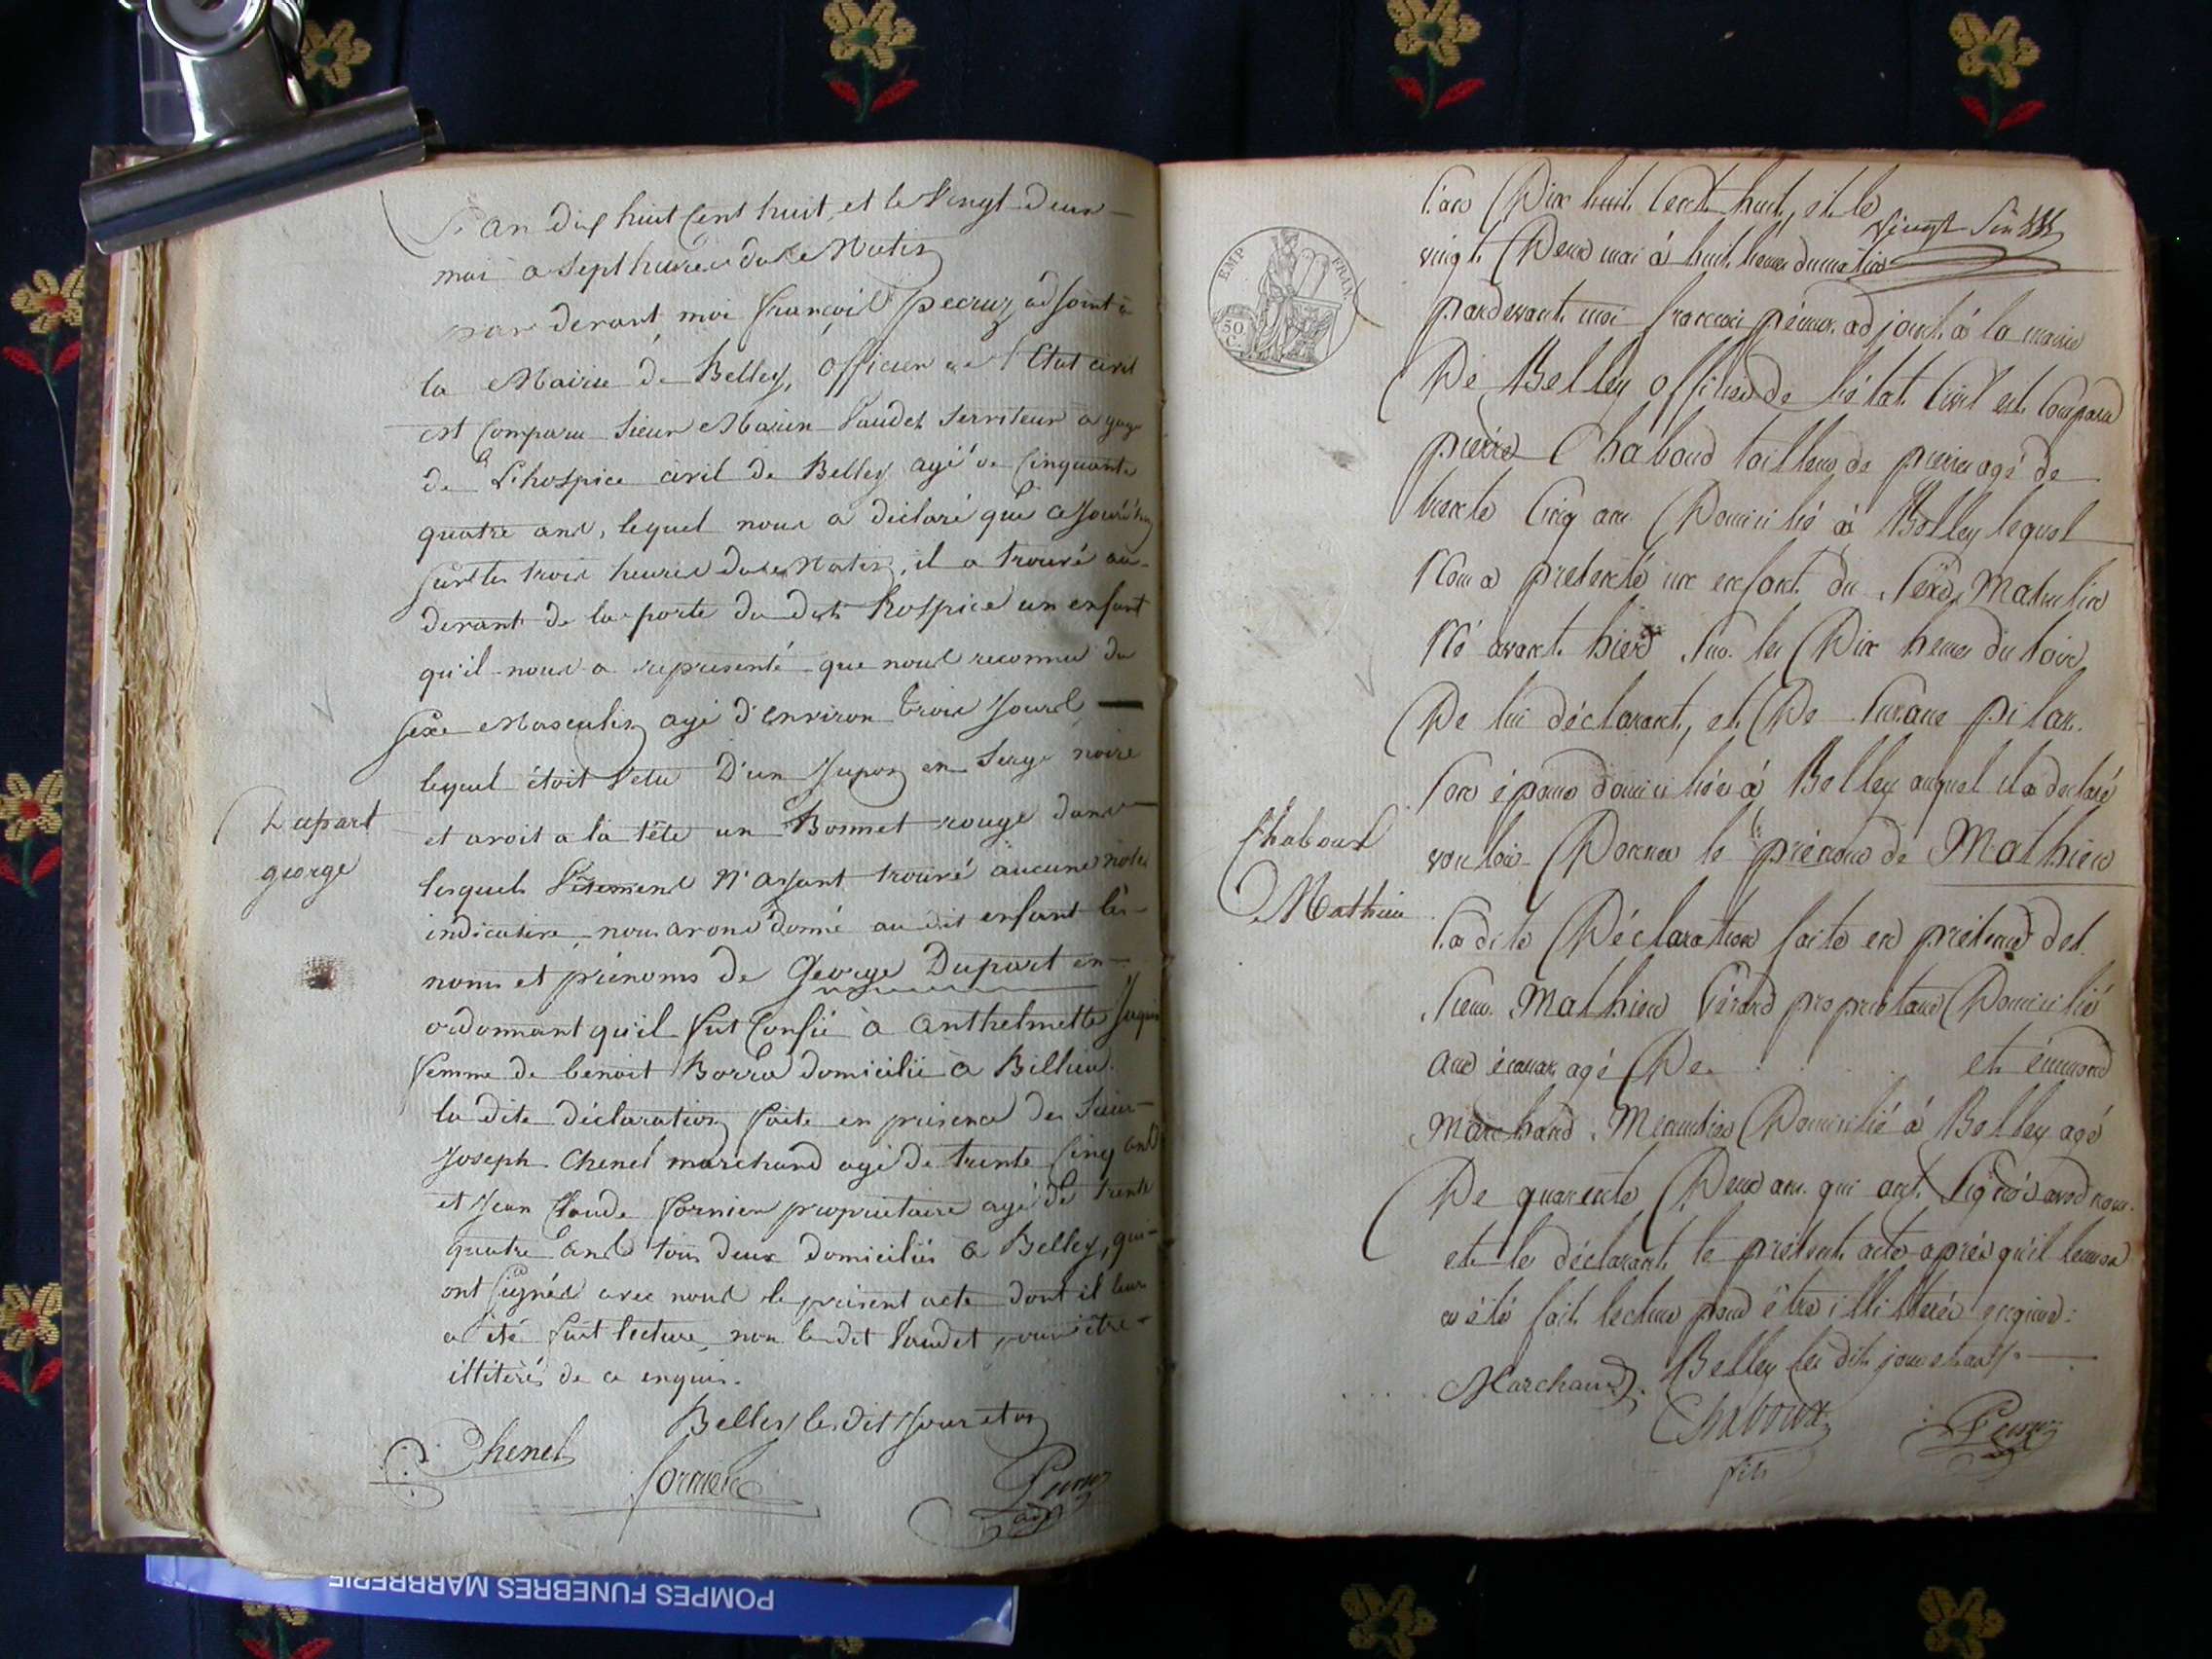 L'an dix huit Cent huit, et le Vingt deux
mai a sept heures du Matin
par devant moi françois pecruz, adjoint a
la Mairie de Belley, officier de l'Etat civil
est Comparu Sieur Marin Vaudet Serviteur a gage
de L'hospice civil de Belley agé de Cinquante
quatre ans, lequel nous a déclaré que ce jourd'huy
sur les trois heures du Matin, il a trouvé au
devant de la porte du dit hospice un enfant
qu'il nous a représenté que nous reconnu du
sexe Masculin agé d'environ trois jours
lequel étoit Vetu D'un Jupon en Serge noire
et avoit a la tête un Bonnet rouge dans
lesquels Vêtements N'ayant trouvé aucune note
indicative, nous avons donné au dit enfant les
noms et prénoms de George Dupart en
ordonnant qu'il fut Confié à anthelmette
femme de benoit Borra domicilié à Billieu.
la dite déclaration faite en présence des Sieur
Joseph Chenel marchand agé de trente Cinq ans
et Jean Claude fornier propriétaire agé de trente
quatre ans tous deux domiciliés a Belley, qui
ont signés avec nous le présent acte dont il leur
a été fait lecture, non le dit Vaudet pour être
illitéré de ce enquis.
Belley les dit jour et an
Dupart
george
Chenel
fornier
Pecruz
adjt
L'an Dix huit Cent huit, et le
Vingt Six
vingt Deux mai à huit heures du matin
pardevant moi francois pécruz adjoint à la mairie
De Belley officier de l'état Civil est Comparu
pierre Chaboud tailleur de pierre agé de
trente Cinq ans Domicilié à Belley lequel
Nous a présenté un enfant du Sexe Masculin
Né avant hier sur les Dix heures du soir,
De lui déclarant, et De Susane pilar.
Son épouse domiciliée à Belley auquel il a déclaré
vouloir Donner le prénom de Mathieu
La dite Déclaration faite en présence des
Sieur Mathieu Gérard propriétaire Domicilié
agé De et émmond
Marchand Domicilié à Belley agé
De quarente Deux ans qui ont Signés avec nous
et le déclarant le présent acte après qu'il leur en
a été fait lecture pour être illitterés enquis:
Belley les dits jour et an
Chaboux
Mathieu
Marchand
Chaboux
fils
Pecruz
EMP. FRAN.
50
C.
POMPES FUNEBRES MARBRERIE